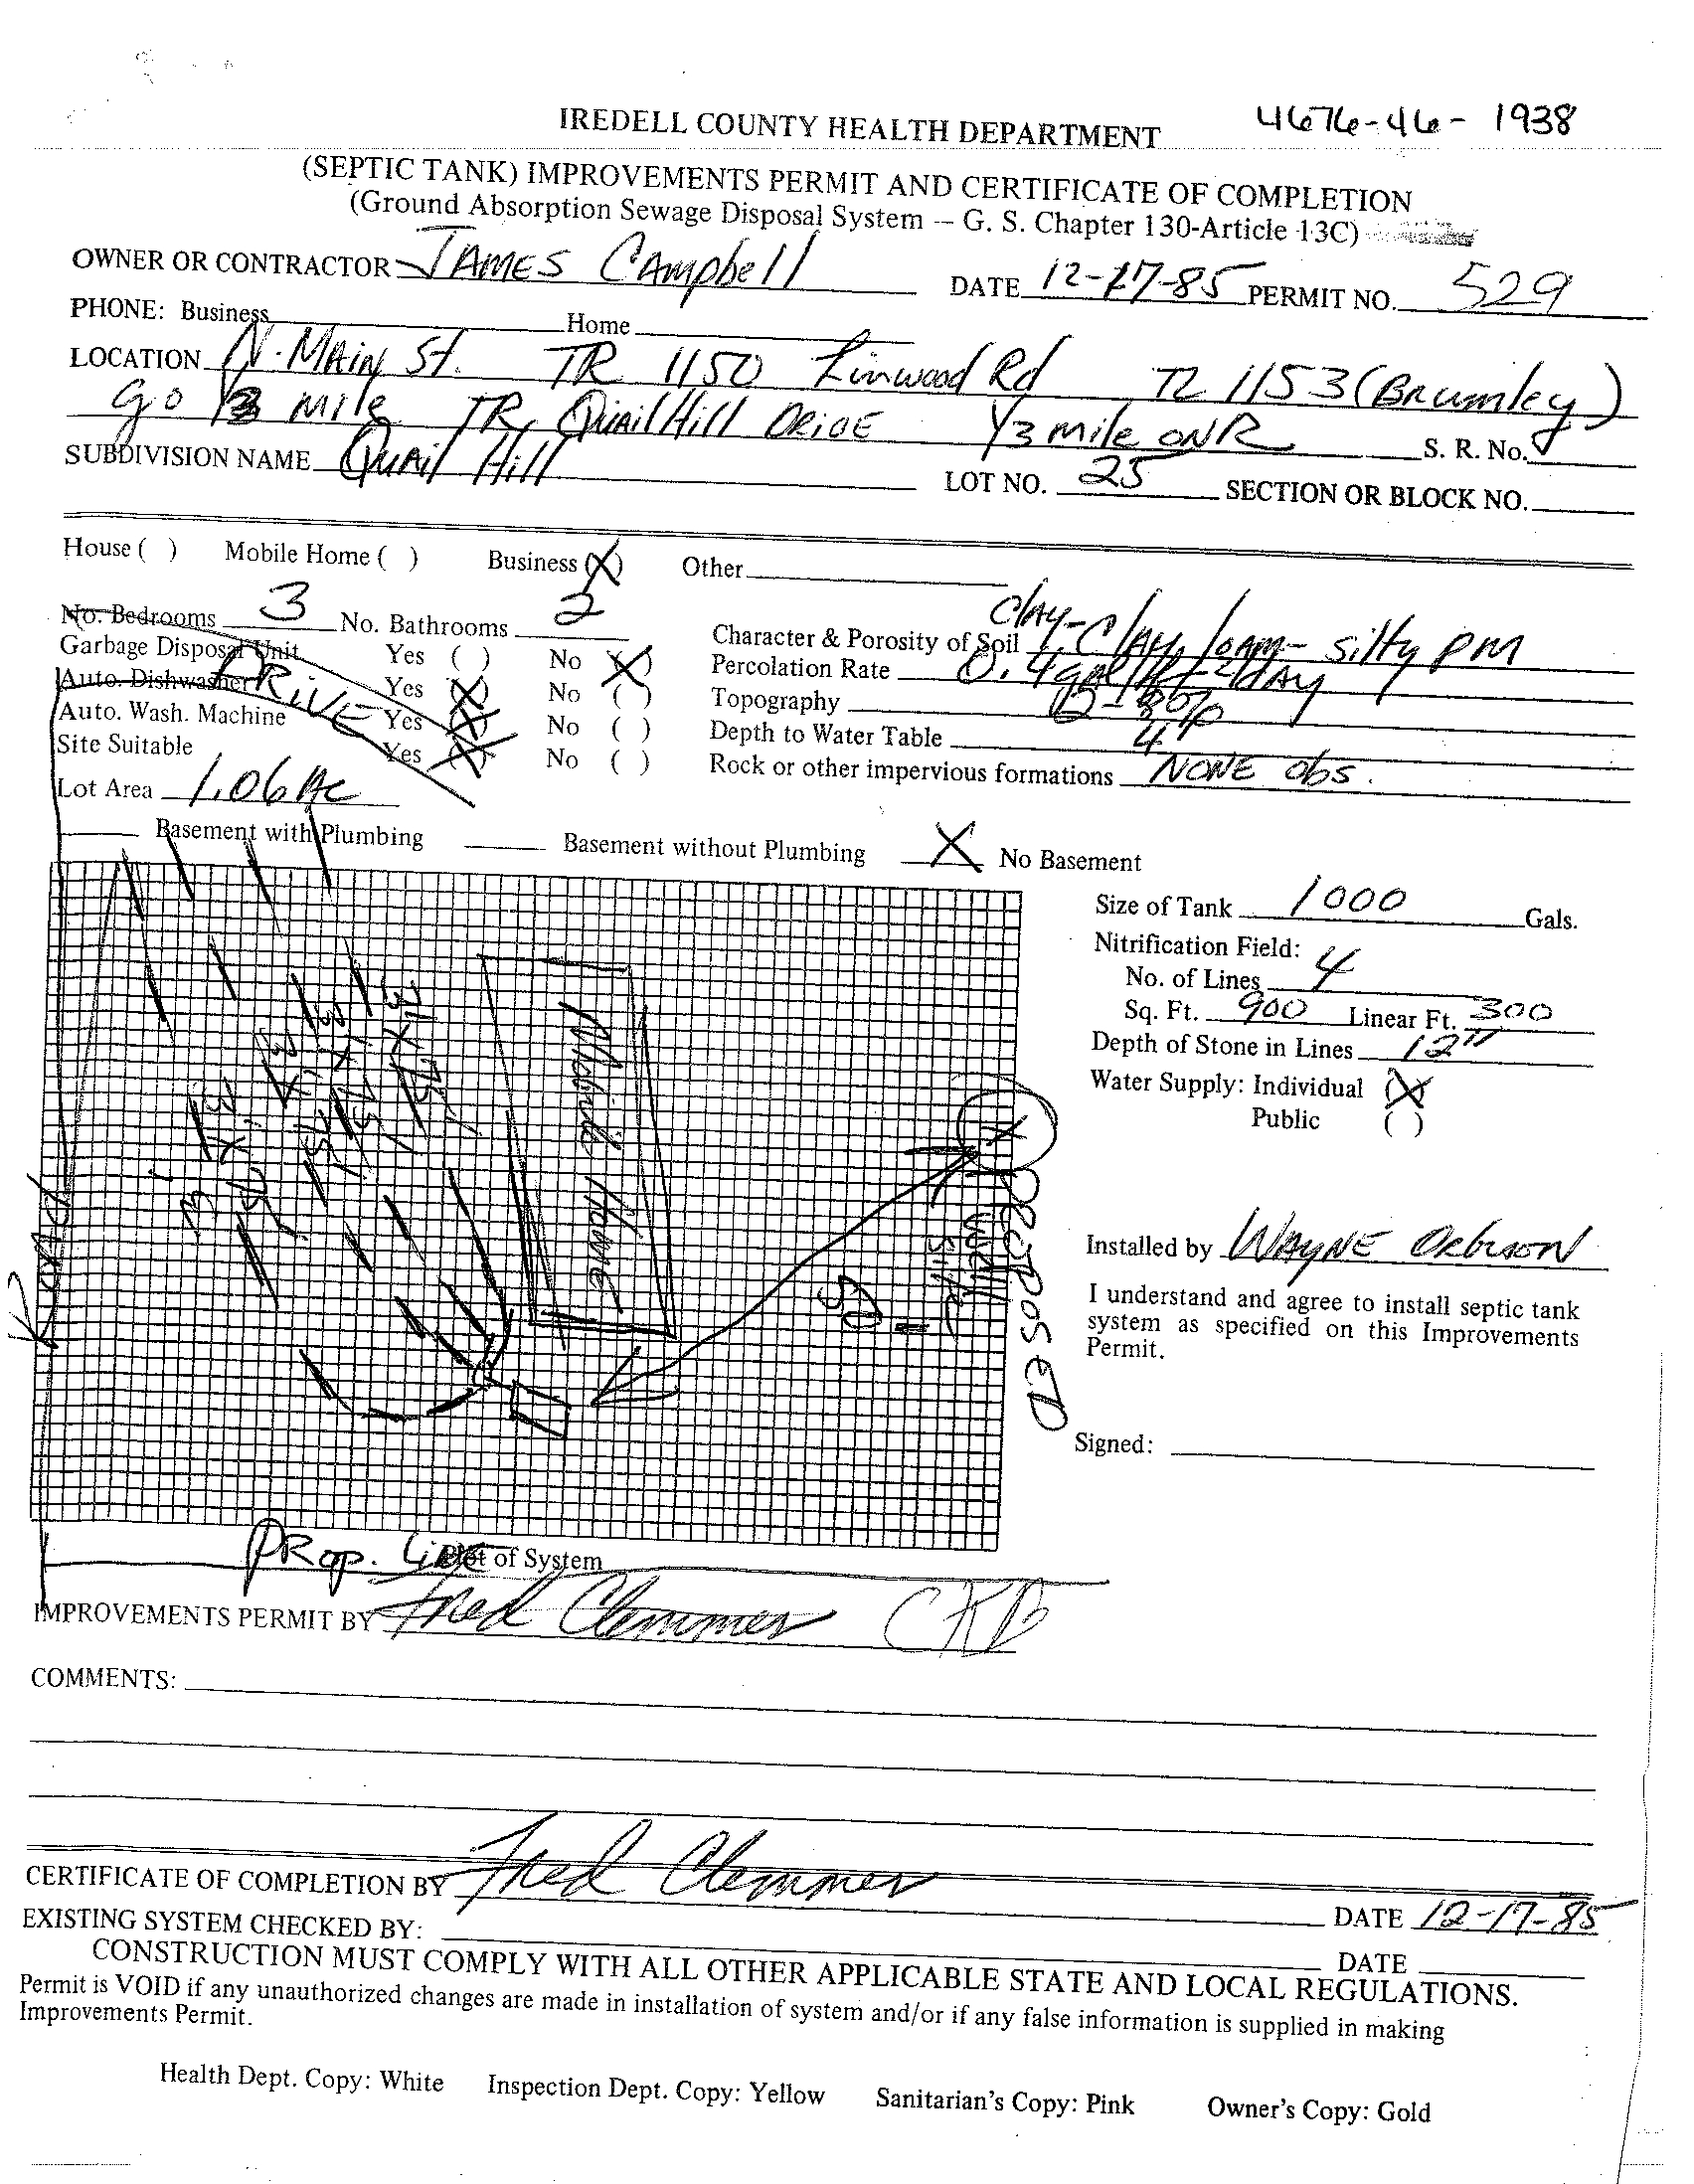 IREDELL COUNTY HEALTH DEPARTMENT 4676-46-1938
(SEPTIC TANK) IMPROVEMENTS PERMIT AND CERTIFICATE OF COMPLETION
(Ground Absorption Sewage Disposal System — G. S. Chapter 130-Article 13C)
OWNER OR CONTRACTOR JAMES CAmpbell DATE 12-17-85 PERMIT NO. 529
PHONE: Business Home
LOCATION N. MAIN St. TR 1150 Linwood Rd TL 1153 (Brumley)
go 1/3 mile TR Quail Hill DRIVE 1/3 mile ON R S. R. No.
SUBDIVISION NAME Quail Hill LOT NO. 25 SECTION OR BLOCK NO.
House ( ) Mobile Home ( ) Business (X) Other
No. Bedrooms 3 No. Bathrooms 2
Character & Porosity of Soil Clay-Clay loam - silty pm
Garbage Disposal Unit Yes ( ) No (X)
Percolation Rate 0.4 gal/ft2/day
Auto. Dishwasher Yes (X) No ( )
Topography
DRIVE
Auto. Wash. Machine Yes (X) No ( )
Depth to Water Table 4'
Site Suitable Yes (X) No ( )
Rock or other impervious formations NONE obs.
Lot Area 1.06 AC
Basement with Plumbing Basement without Plumbing X No Basement
Size of Tank 1000 Gals.
Nitrification Field:
No. of Lines 4
Sq. Ft. 900 Linear Ft. 300
Depth of Stone in Lines 12"
Water Supply: Individual (X)
Public ( )
3'X75'
3'X75'
3'X75'
3'X75'
Mobile Home
PROPOSED
well
site
Installed by WAYNE ORbison
I understand and agree to install septic tank
system as specified on this Improvements
Permit.
Signed:
PROP. LINE
Plot of System
IMPROVEMENTS PERMIT BY Fred Clemmer
COMMENTS:
CERTIFICATE OF COMPLETION BY Fred Clemmer DATE 12-17-85
EXISTING SYSTEM CHECKED BY: DATE
CONSTRUCTION MUST COMPLY WITH ALL OTHER APPLICABLE STATE AND LOCAL REGULATIONS.
Permit is VOID if any unauthorized changes are made in installation of system and/or if any false information is supplied in making
Improvements Permit.
Health Dept. Copy: White Inspection Dept. Copy: Yellow Sanitarian's Copy: Pink Owner's Copy: Gold